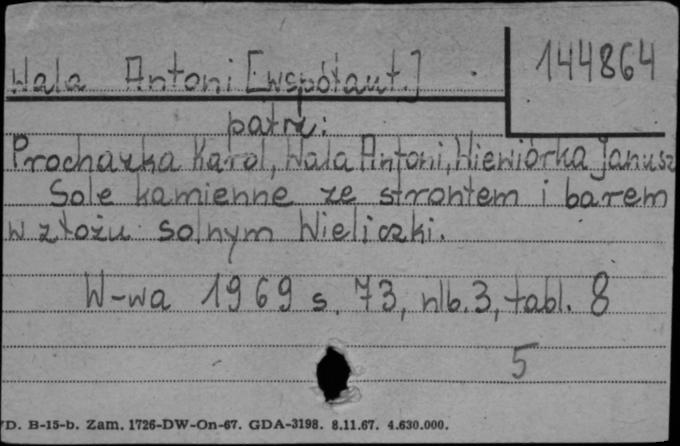 144864
Wala Antoni [współaut.]
patrz:
Prochazka Karol, Wala Antoni, Wiewiórka Janusz
Sole kamienne ze strontem i barem
w złożu solnym Wieliczki.
W-wa 1969 s. 73, nlb. 3, tabl. 8
5
D. B-15-b. Zam. 1726-DW-On-67. GDA-3198. 8.11.67. 4.630.000.